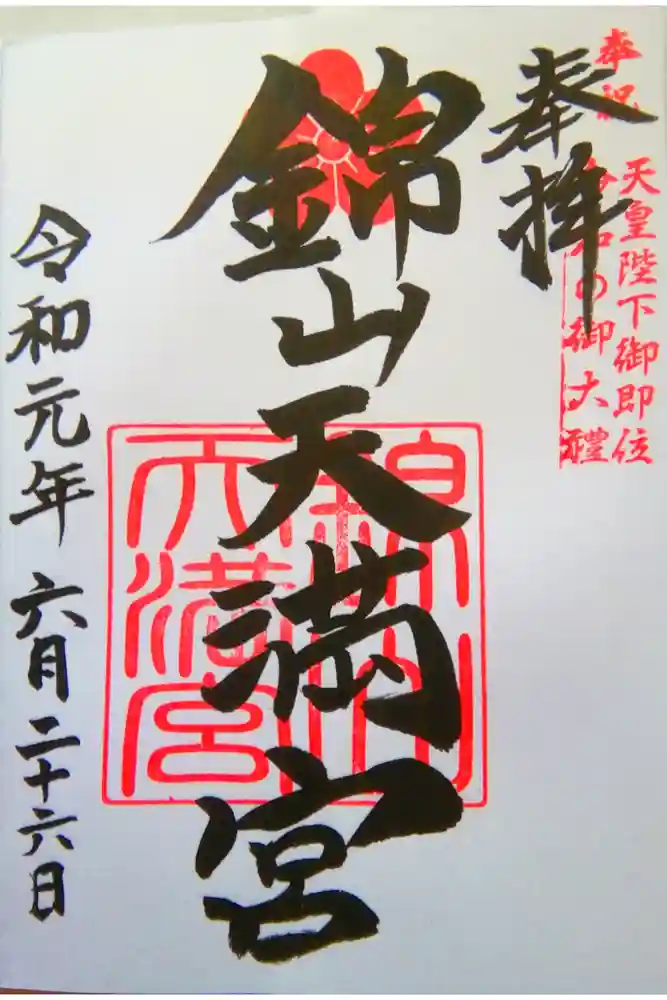 奉祝
天皇陛下御即位
令和の御大禮
奉拝
錦山天満宮
錦山
天満宮
令和元年六月二十六日